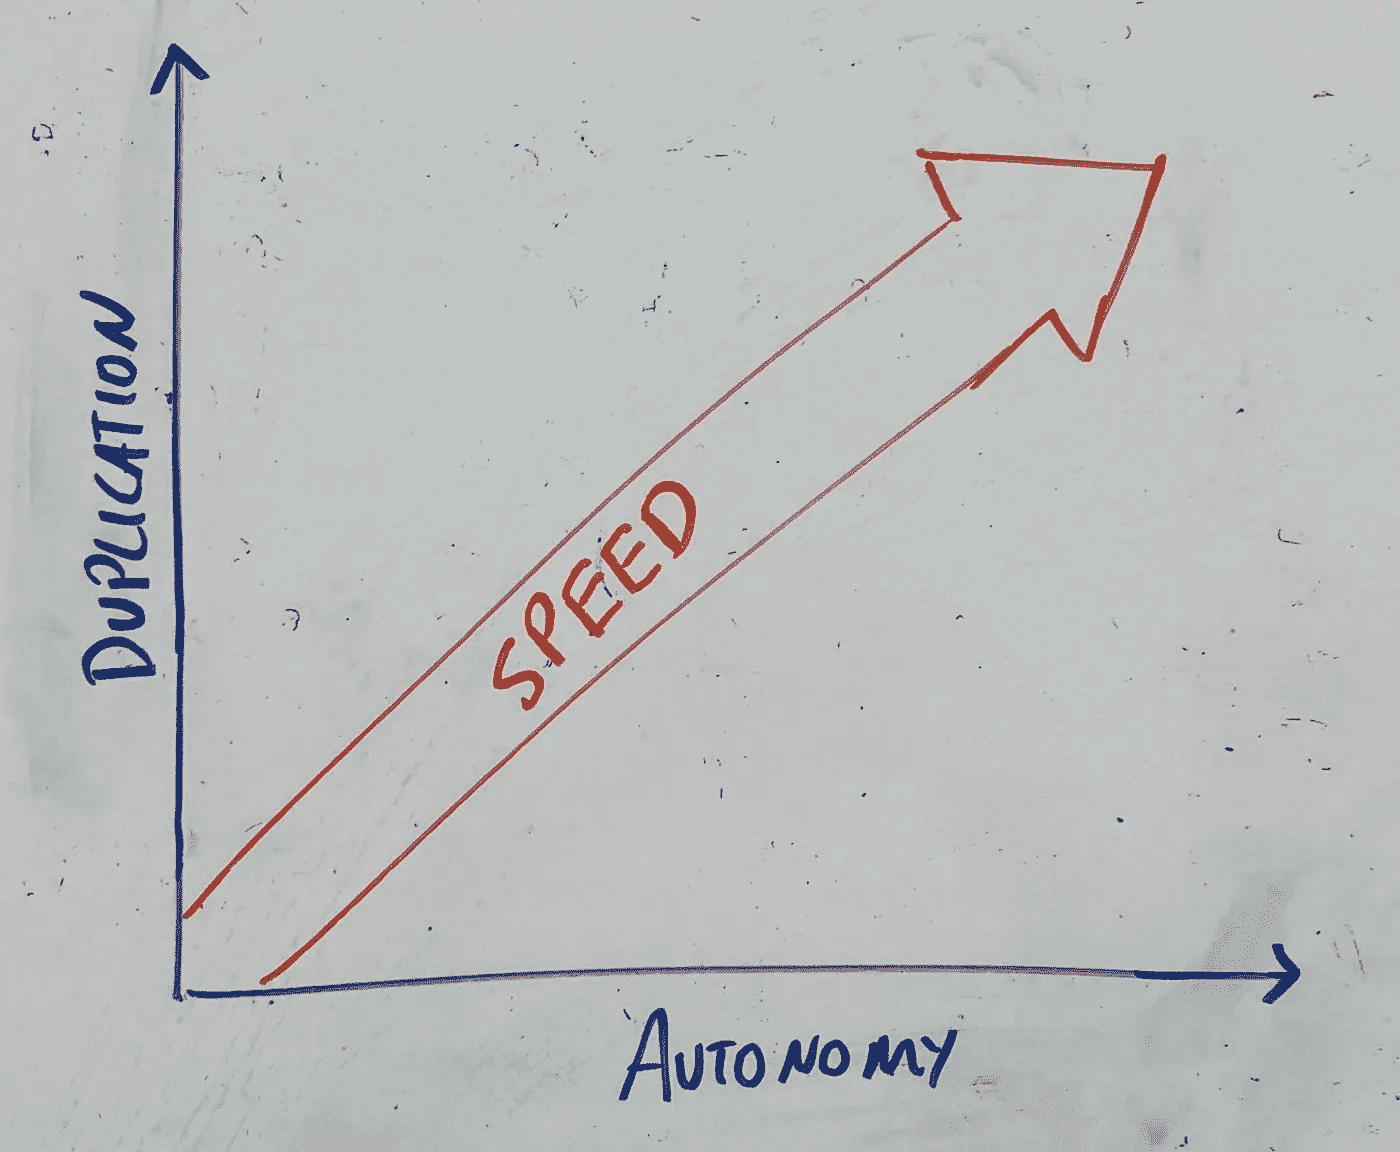 DUPLICATION
SPEED
AUTONOMY